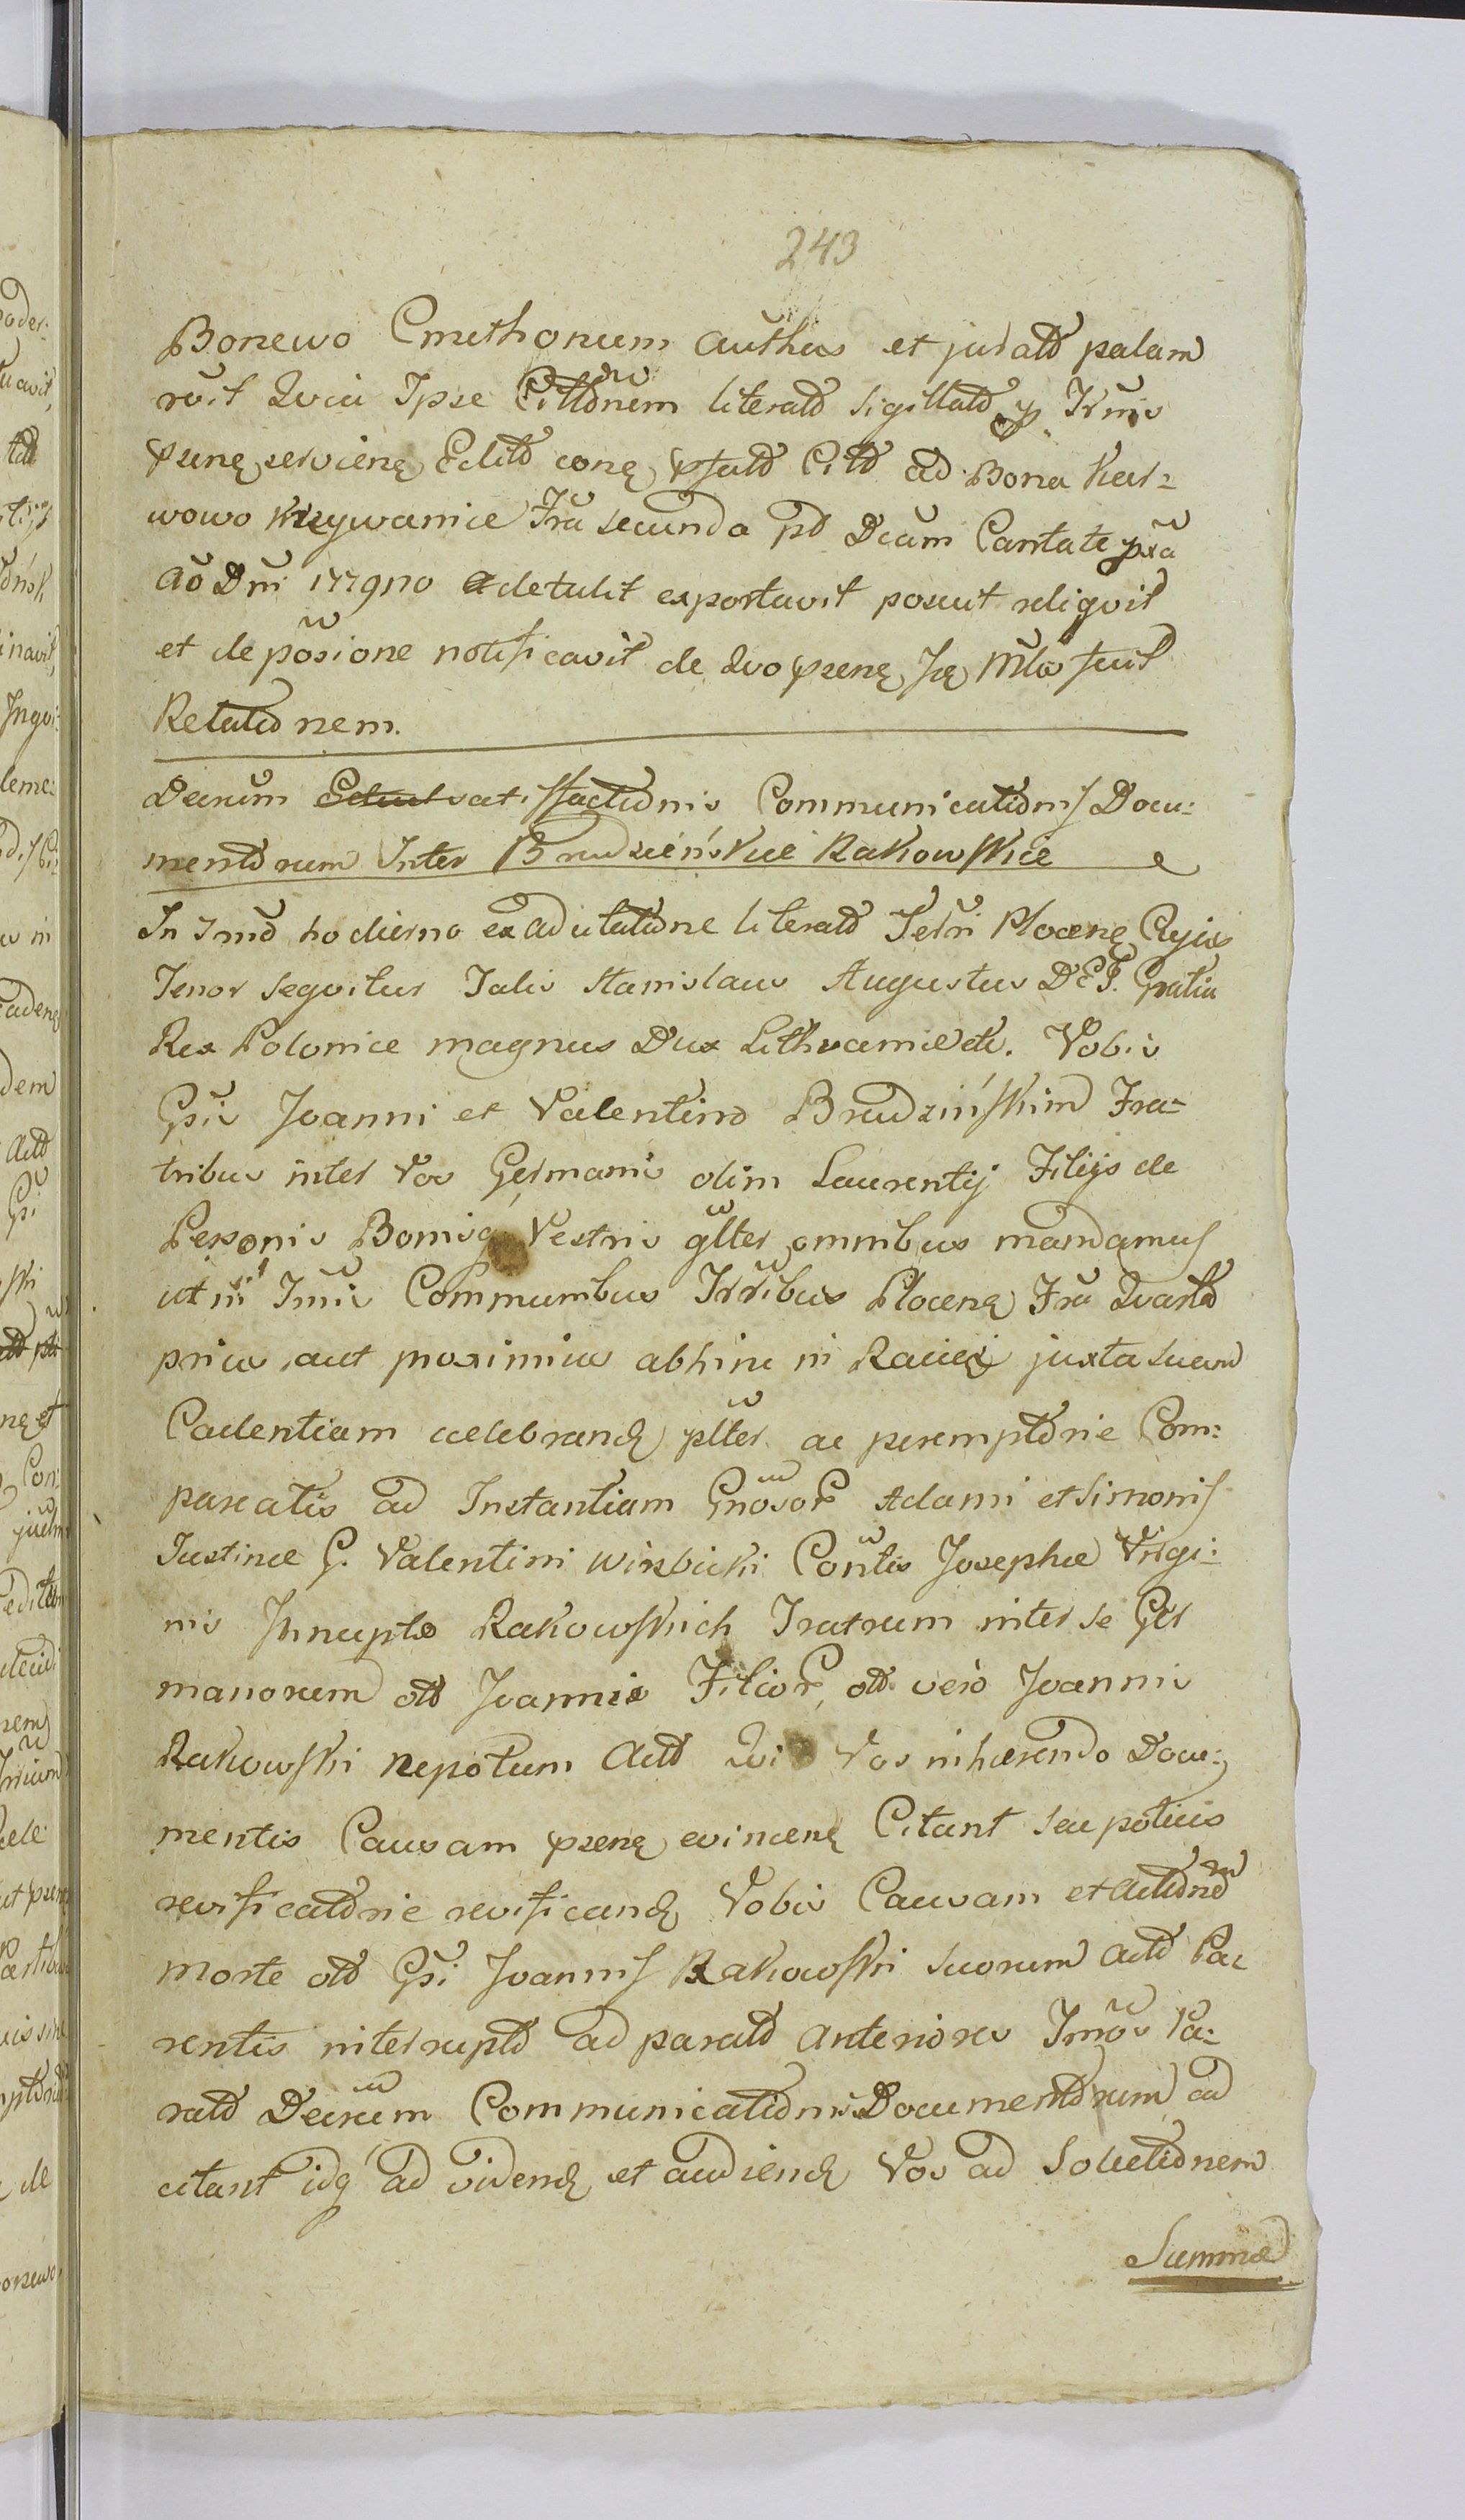 243
Bonewo Cmethonum authus et jurato palam
rvit Qvia Ipse Cittonem literato sigillato p Trmis
psenę servienę Edito conę psato Cito ad Bona Kar=
wowo Krzywanice Fra secunda pt Dcam Cantate pxa
Ao Dni 1779no detulit exportavit posuit reliqvit
et de posione notificavit de Qvo psenę Mlis fecit
Relationem.
Decrum satisffactionis Communicationis Docu:
mentorum Inter Brudzieńskie Rakowskie
In Tmo hodierno ex Adcitatione literato Terri Plocenę Cujus
Tenor seqvitur Talis Stanislaus Augustus DEI. Gratia
Rex Poloniæ magnus Dux Lithvaniæ etc. Vobis
Gsis Joanni et Valentino Brudzińskim Fra=
tribus inter Vos Germanis olim Laurentij Filijs de
Personis Bonisq Vestris glter omnibus mandamus
ut in Tmis Communibus Trribus Plocenę Fra Qvarto
pria aut proximior abhinc in Raciąż juxta suam
Cadentiam celebrand plter ac peremptorie Com:
pareatis ad Instantiam Gnosor Adami et Simonis
Justinæ G. Valentini Wierzbicki Contis Josephæ Virgi:
nis Innupto Rakowskich Fratrum inter se Ger
manorum oto Joannis Filior, oto vero Joannis
Rakowski Nepotum Acto Qvi Vos inhærendo Docu:
mentis Causam psenę evincenę Citant seu potius
revificatorie revificand Vobis Causam et Actionem
morte oto Gsi Joannis Rakowski suorum Acto Pa=
rentis interrupto ad parato anteriores Tmos Pa:
rato Decrum Communicationis Documentorum ad
citant idq ad videnđ et audienđ Vos ad Solutionem
Summæ